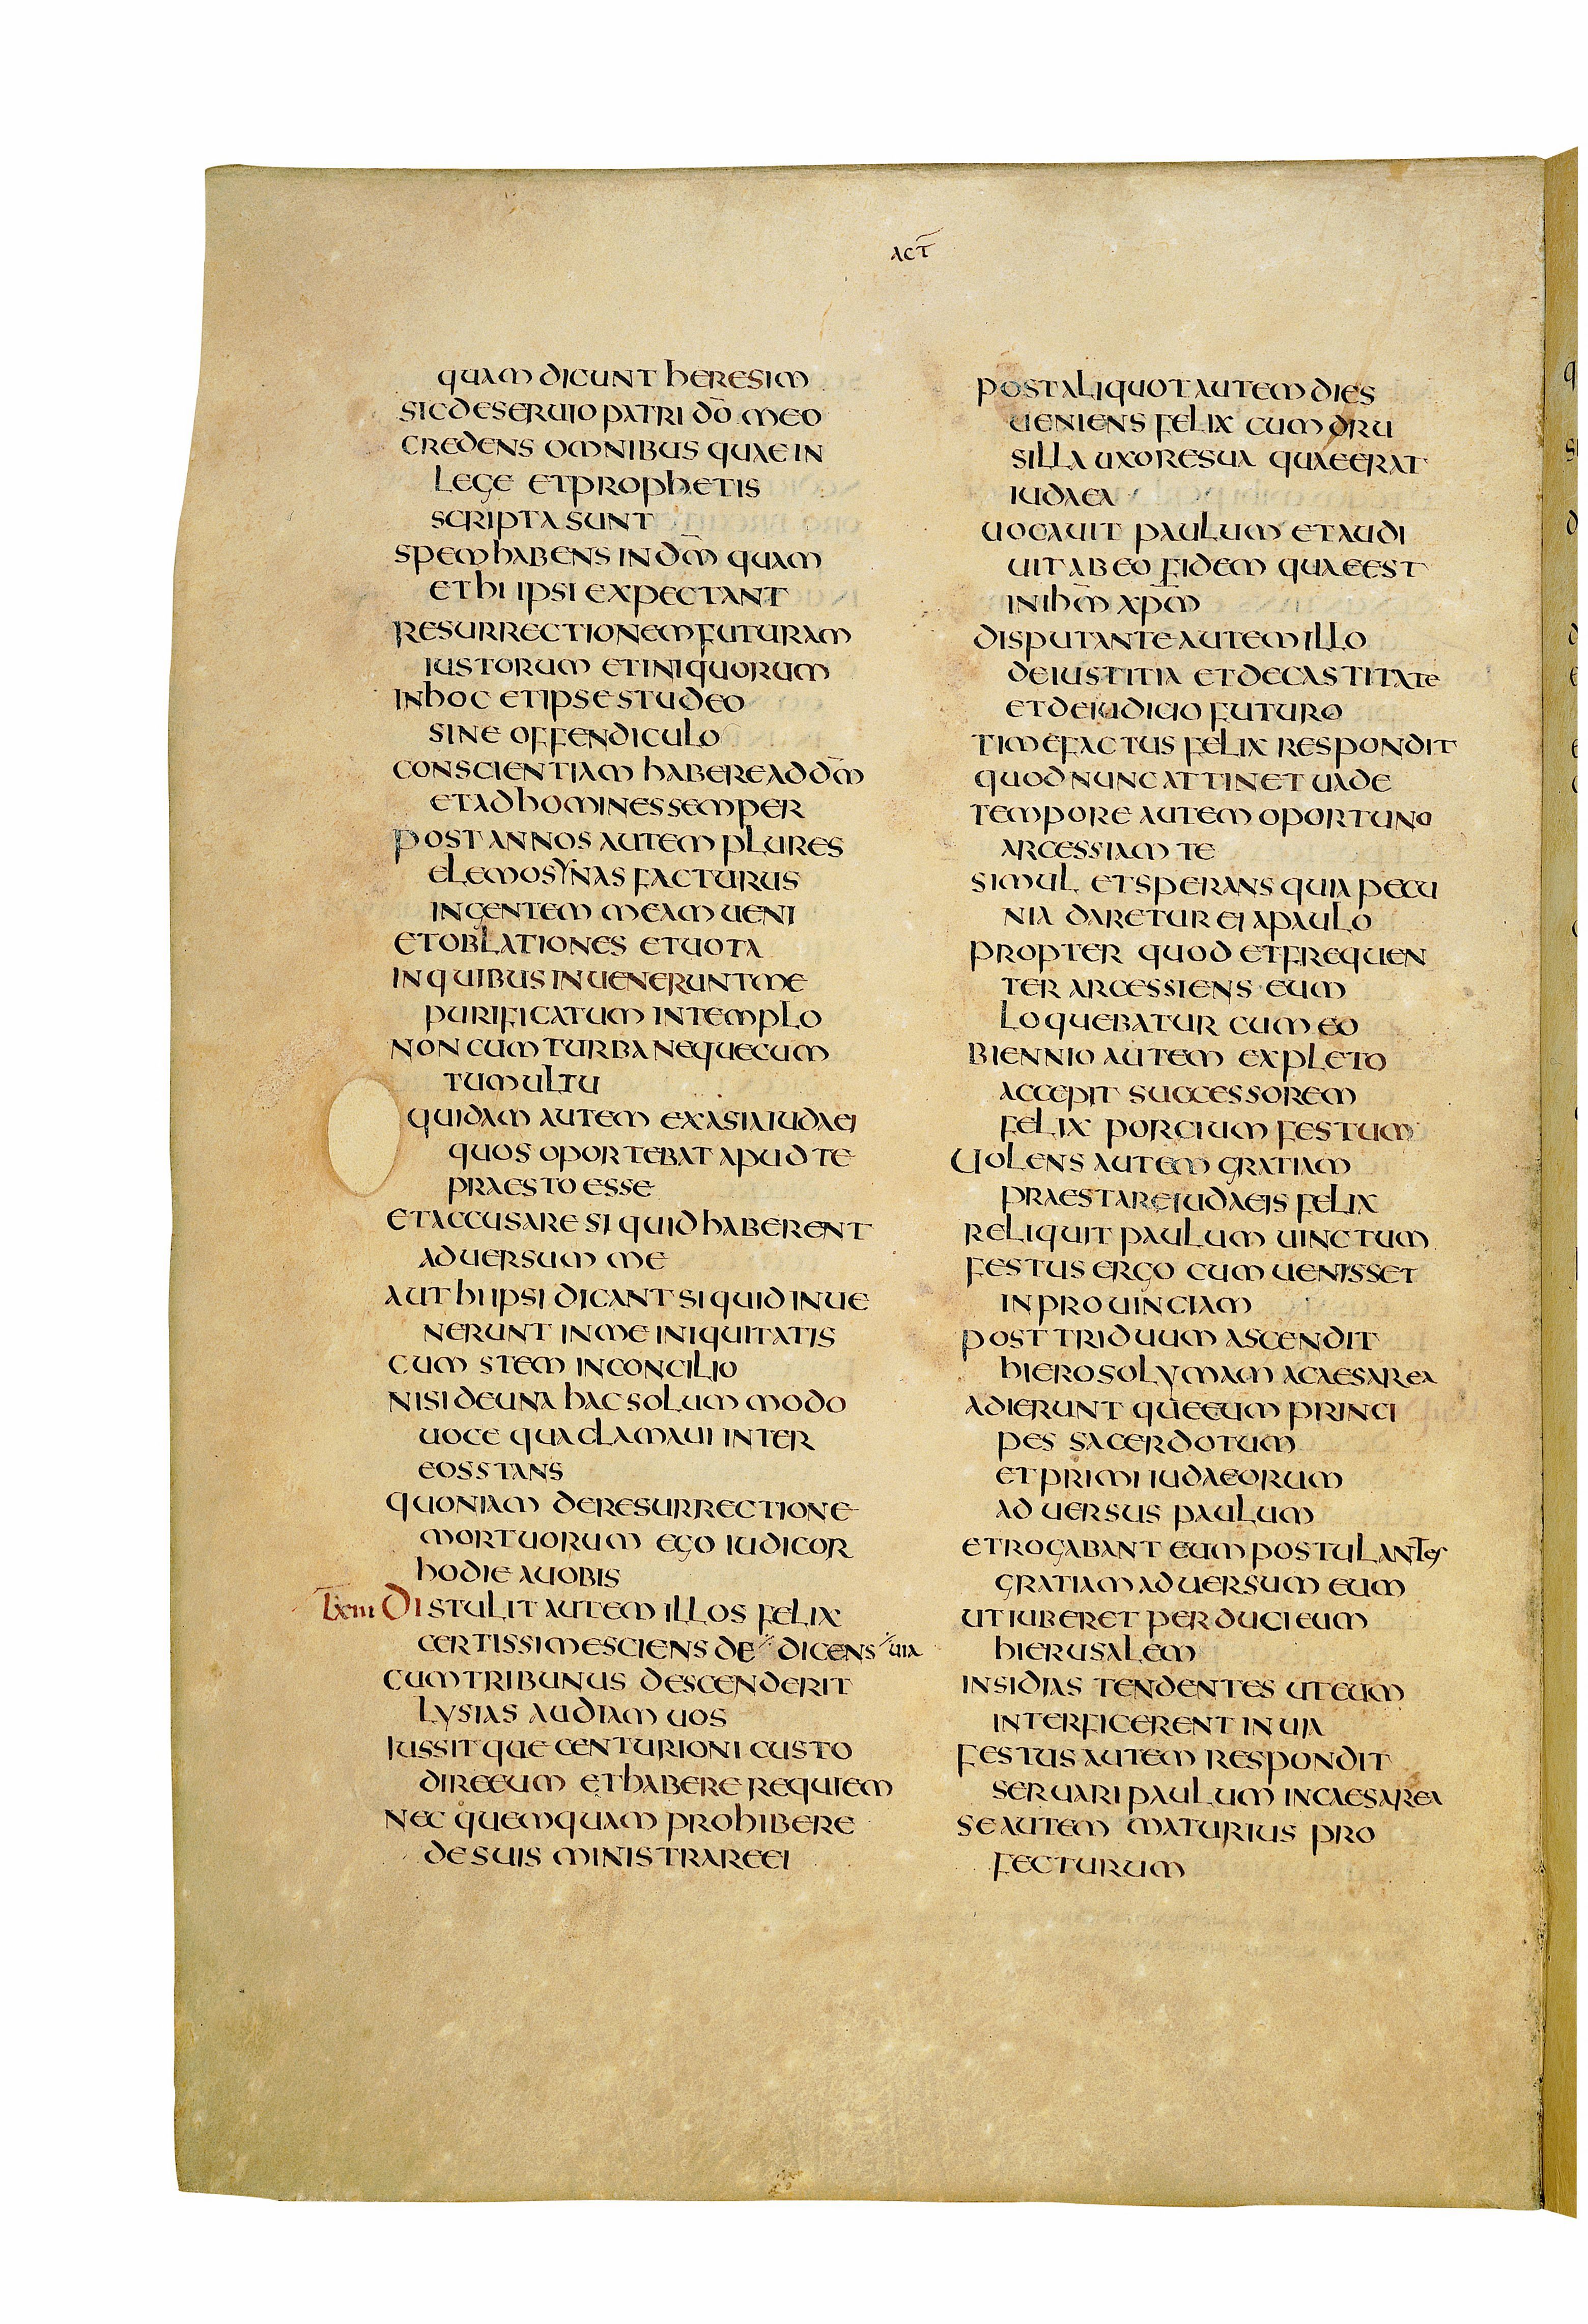 ACT̅
quam dicunt heresim
sic deseruio patri do̅ meo
credens omnibus quae in
lege et prophetis
scripta sunt
spem habens in dm̅ quam
et hi ipsi expectant
resurrectionem futuram
iustorum et iniquorum
in hoc et ipse studeo
sine offendiculo
conscientiam habere ad dm̅
et ad homines semper
post annos autem plures
elemosynas facturus
in gentem meam ueni
et oblationes et uota
in quibus inuenerunt me
purificatum in templo
non cum turba neque cum
tumultu
quidam autem ex asia iudaei
quos oportebat apud te
praesto esse
et accusare si quid haberent
aduersum me
aut hi ipsi dicant si quid inue
nerunt in me iniquitatis
cum stem in concilio
nisi de una hac solum modo
uoce qua clamaui inter
eos stans
quoniam de resurrectione
mortuorum ego iudicor
hodie a uobis
lxiii Distulit autem illos felix
certissime sciens de dicens uia
cum tribunus descenderit
lysias audiam uos
iussitque centurioni custo
dire eum et habere requiem
nec quemquam prohibere
de suis ministrare ei
post aliquot autem dies
ueniens felix cum dru
silla uxore sua quae erat
iudaea
uocauit paulum et audi
uit ab eo fidem quae est
in ihm̅ xpm̅
disputante autem illo
de iustitia et de castitate
et de iudicio futuro
timefactus felix respondit
quod nunc attinet uade
tempore autem oportuno
arcessiam te
simul et sperans quia pecu
nia daretur ei a paulo
propter quod et frequen
ter arcessiens eum
loquebatur cum eo
biennio autem expleto
accepit successorem
felix porcium festum
Uolens autem gratiam
praestare iudaeis felix
reliquit paulum uinctum
festus ergo cum uenisset
in prouinciam
post triduum ascendit
hierosolymam a caesarea
adierunt queeum princi
pes sacerdotum
et primi iudaeorum
aduersus paulum
et rogabant eum postulantes
gratiam aduersum eum
ut iuberet perduci eum
hierusalem
insidias tendentes ut eum
interficerent in uia
festus autem respondit
seruari paulum in caesarea
se autem maturius pro
fecturum